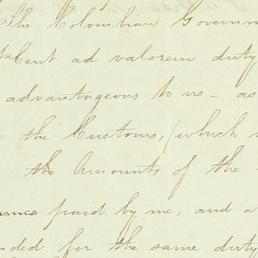 The Colombian Governm
Cent ad valorem duty
advantageous to us - as
the Customs, (which
the Amounts of the
paid by me, and a
ded for the same duty